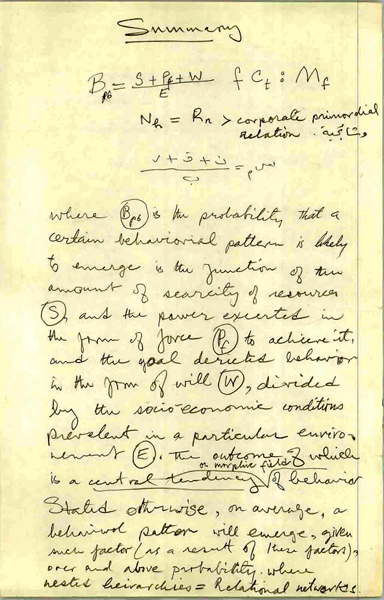 Summary
B_pb = S + P_f + W / E f C_t : M_f
N_h = R_n > corporate primordial
relation.
ن + ق + د
ب
where (B_pb) is the probability that a
certain behaviorial pattern is likely
to emerge is the function of the
amount of scarcity of resources
(S), and the power excerted in
the form of force (P_f) to achieve it,
and the goal dericted behavior
in the form of will (W), divided
by the socio-economic conditions
prevelent in a particular enviro-
nement (E). The outcome of which
or morphic field
is a central tendency of behavior
Stated otherwise, on average, a
behaivorl pattern will emerge, given
such factor (as a result of these factors),
over and above probability. where
nested heirarchies = Relational networks.